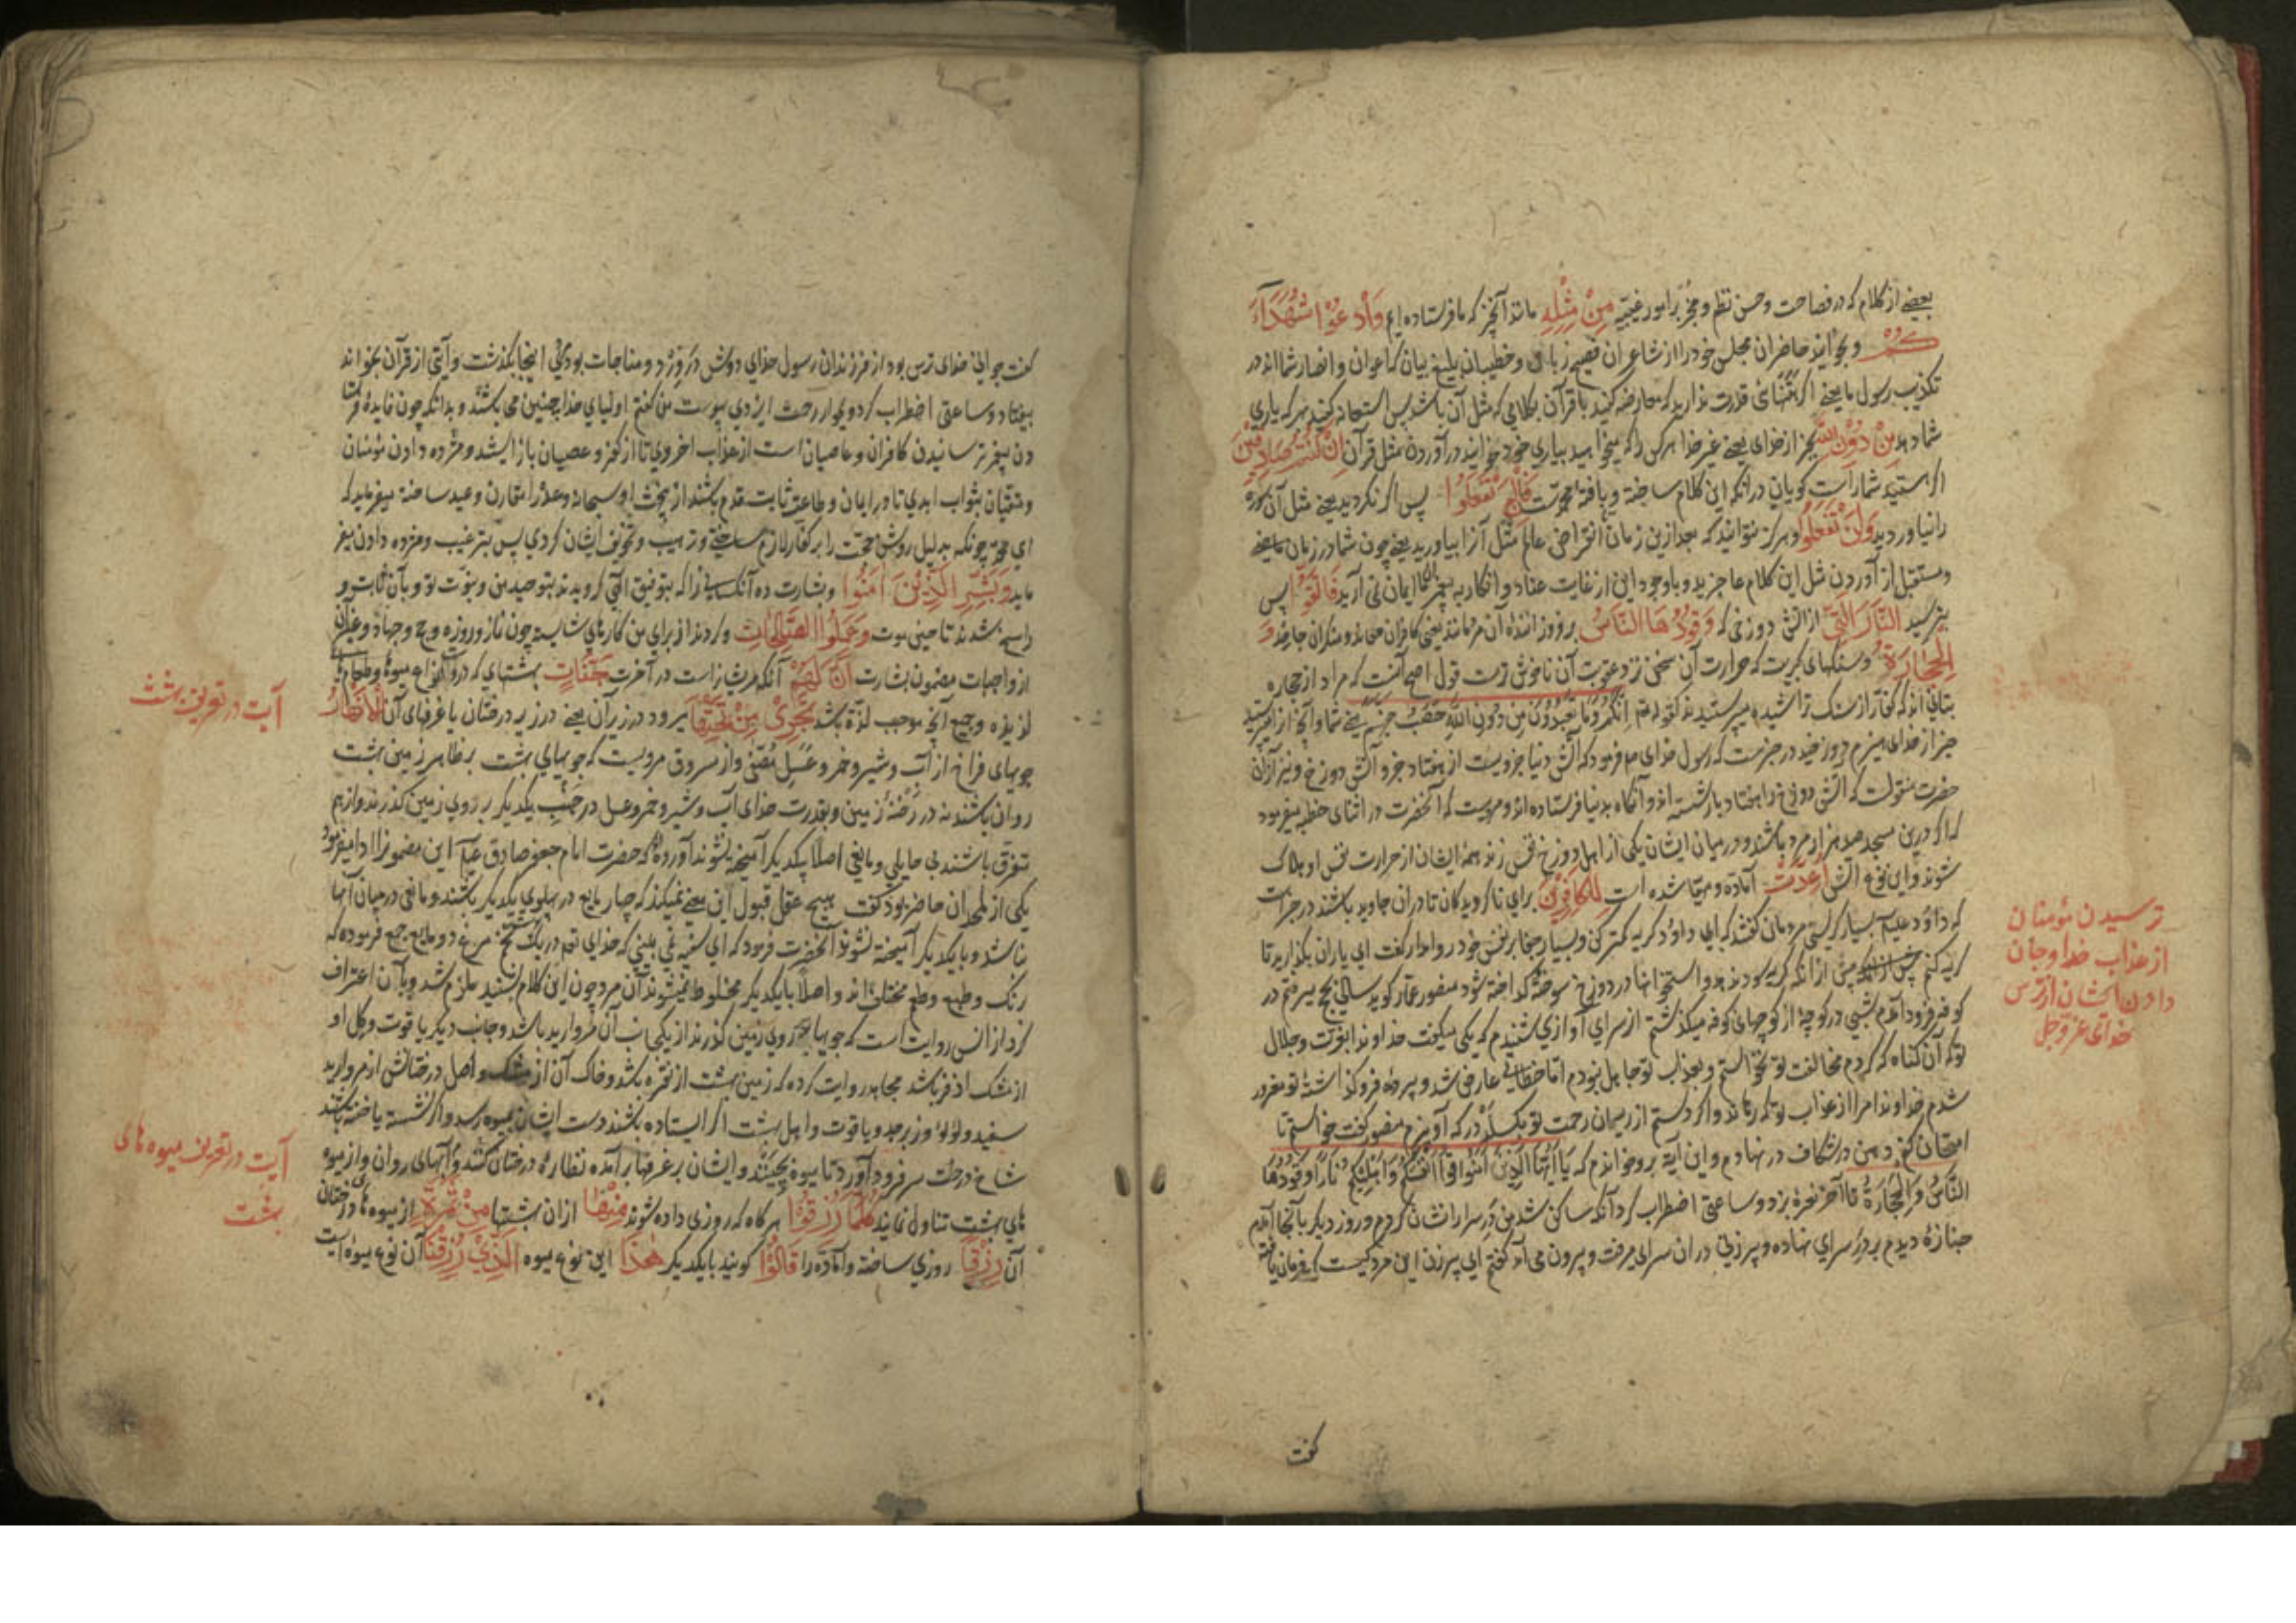 بعضی از کلام که در فصاحت و حسن نظم و مخبر بر امور غیبیه مِنْ مِثْلِهِ مانند آنچیز که ما فرستاده ایم وَادْعُوا شُهَدَآءَ
كُمْ و بخوانید حاضران مجلس خود را از شاعران فصیح زبان و خطیبان بلیغ بیان که اعوان و انصار شمااند در
تکذیب رسول ما یعنی اگر تنهای قدرت ندارید که معارضه کنید با قرآن بکلامی که مثل آن باشد پس استعانه کنید بهر که یاری
شما دهد مِنْ دُوْنِ اللهِ بجز از خدای یعنی غیر خدا هر کس را که میخواهید بیاری خود بخوانید در آوردن مثل قرآن اِنْ كُنْتُمْ صَادِقِيْنَ
اگر هستید شما راست گویان در آنکه این کلام ساخته و بافتهٔ محمدست فَاِنْ لَمْ تَفْعَلُوا پس اگر نکردید یعنی مثل آن سوره
را نیاوردید وَلَنْ تَفْعَلُوا و هرگز نتوانید که بعد ازین زمان تا انقراض عالم مثل آنرا بیاورید یعنی چون شما در زمان ماضی
و مستقبل از آوردن مثل این کلام عاجزید و باوجود این از غایت عناد و انکار به پیغمبر ما ایمان نمی آرید فَاتَّقُوا پس
بترسید النَّارَ الَّتِي از آتش دوزخی که وَقُوْدُهَا النَّاسُ برفروزاننده آن مردمانند یعنی کافران و منکران جاحد وَ
الْحِجَارَةُ و سنگهای کبریت که حرارت آن سخت تر و عقوبت آن ناخوش ترست قول اصح آنست که مراد از حجاره
بتانی اند که کفار از سنگ تراشیده میپرستیدند کقوله تعم اِنَّكُمْ وَمَا تَعْبُدُوْنَ مِنْ دُوْنِ اللهِ حَصَبُ جَهَنَّمَ یعنی شما و آنچه از میپرستید
جز از خدای هیزم دوزخید در خبرست که رسول خدای ص فرمود که آتش دنیا جزویست از هفتاد جزو آتش دوزخ و نیز از آن
حضرت منقولست که آتش دوزخ را هفتاد بار شسته اند و آنگاه بدنیا فرستاده اند و مرویست که آنحضرت در اثنای خطبه میفرمود
که اگر درین مسجد صد هزار مرد باشند و در میان ایشان یکی از اهل دوزخ نفس زند همهٔ ایشان از حرارت نفس او هلاک
شوند و این نوع آتش اُعِدَّتْ آماده و مهیا شده است لِلْكَافِرِيْنَ برای ناگرویدگان تا در آن جاوید باشند در خبرست
که داؤد علیه بسیار گریستی مردمان گفتند که ای داؤد گریه کمتر کن و بسیار جفا بر نفس خود روا مدار گفت ای یاران بگذارید تا
گریه کنم پیش از آنکه گریه سود ندهد و استخوانها در دوزخ سوخته گداخته شود منصور عمار گوید سالی بحج میرفتم در
کوفه فرود آمدم شبی در کوچهٔ از کوچهای کوفه میگذشتم از سرای آوازی شنیدم که یکی میگفت خداوندا بعزت و جلال
تو که آن گناه که کردم مخالفت تو نخواستم و بعذاب تو جاهل نبودم اما خطایی عارض شد و پرده فرو گذاشتهٔ تو مغرور
شدم خداوندا مرا از عذاب تو که رهاند و اگر دستم از ریسمان رحمت تو بکسلد در که آویزم منصور گفت خواستم تا
امتحان کنم دهن در شکاف در نهادم و این آیه برو خواندم که يَا اَيُّهَا الَّذِيْنَ اٰمَنُوا قُوْا اَنْفُسَكُمْ وَاَهْلِيْكُمْ نَارًا وَقُوْدُهَا
النَّاسُ وَالْحِجَارَةُ تا آخر نعرهٔ بزد و ساعتی اضطراب کرد آنکه ساکن شد من در سرا را نشان کردم و روز دیگر بآنجا آمدم
جنازهٔ دیدم بر در سرای نهاده و پیرزنی در آن سرای میرفت و بیرون می آمد گفتم ای پیرزن این مرد کیست که فرمان یافته
گفت
ترسیدن مؤمنان
از عذاب خدا و جان
دادن ایشان از ترس
خدای عزوجل
گفت جوانی خدای ترس بود از فرزندان رسول خدای دوش در ورد و مناجات بود یکی اینجا بگذشت و آیتی از قرآن بخواند
بیفتاد و ساعتی اضطراب کرد و بجوار رحمت ایزدی پیوست من گفتم اولیای خدا چنین می باشند و بدانکه چون فایدهٔ فرستا
دن پیغمبر ترسانیدن کافران و عاصیان است از عذاب اخروی تا از کفر و عصیان باز ایستند و مژده دادن مؤمنان
و متقیان بثواب ابدی تا در ایمان و طاعت ثابت قدم باشند ازینجهت او سبحانه وعد را مقارن وعید ساخته میفرماید که
ای محمد چونکه بدلیل روشن حجت را بر کفار لازم ساختی و ترهیب و تخویف ایشان کردی پس بترغیب و مژده دادن میفر
ماید وَبَشِّرِ الَّذِيْنَ اٰمَنُوا و بشارت ده آنکسانی را که بتوفیق الهی گرویدند بتوحید من و نبوت تو و بآن ثابت و
راسخ شدند تا حین موت وَعَمِلُوا الصَّالِحَاتِ و کردند از برای من کارهای شایسته چون نماز و روزه و حج و جهاد و غیر آن
از واجبات مضمون بشارت اَنَّ لَهُمْ آنکه مریشانراست در آخرت جَنَّاتٍ بهشتهای که درو انواع میوه و طعامهای
لذیذه و جمیع آنچه موجب لذة باشد تَجْرِيْ مِنْ تَحْتِهَا میرود در زیر آن یعنی در زیر درختان یا غرفهای آن الْاَنْهَارُ
جویهای فراخ از آب و شیر و خمر و عسل مُصَفّٰی و از مسروق مرویست که جویهای بهشت بر ظاهر زمین بهشت
روان باشند نه در رخنهٔ زمین و بقدرت خدای آب و شیر و خمر و عسل در جنب یکدیگر بر روی زمین گذرند و از هم
متفرق باشند بی حایلی و مانعی اصلا بیکدیگر آمیخته نشوند آورده اند که حضرت امام جعفر صادق علیه این مضمونرا ادا میفرمود
یکی از ملحدان حاضر بود گفت هیچ عقل قبول این معنی نمیکند که چهار مایع در پهلوی یکدیگر باشند و مانعی در میان آنها
نباشد و با یکدیگر آمیخته نشوند آنحضرت فرمود که ای سفیه نمی بینی که خدای تعم در یک تخم مرغ دو مایع جمع فرموده که
رنگ و طبع و طعم مختلف اند و اصلا با یکدیگر مخلوط نمیشوند آن مرد چون این کلام بشنید ملزم شد و بآن اعتراف
کرد از انس روایت است که جویها بر روی زمین گذرند از یکجانب آن مروارید باشد و جانب دیگر یاقوت و گل او
از مشک اذفر باشد مجاهد روایت کرده که زمین بهشت از نقره باشد و خاک آن از مشک و اصل درختانش از مروارید
سفید و لؤلؤ و زبرجد و یاقوت و اهل بهشت اگر ایستاده باشند دست ایشان بمیوه رسد و اگر نشسته یا خفته باشند
شاخ درخت سر فرود آورد تا میوه بچینند و ایشان بر غرفها برآمده نظارهٔ درختان کنند و آبهای روان و از میوه
های بهشت تناول نمایند كُلَّمَا رُزِقُوا هرگاه که روزی داده شوند مِنْهَا از آن بهشتها مِنْ ثَمَرَةٍ از میوه های درختان
آن رِزْقًا روزی ساخته و آماده را قَالُوْا گویند با یکدیگر هٰذَا این نوع میوه الَّذِيْ رُزِقْنَا آن نوع میوه ایست
آیت در تعریف بهشت
آیت در تعریف میوه های
بهشت